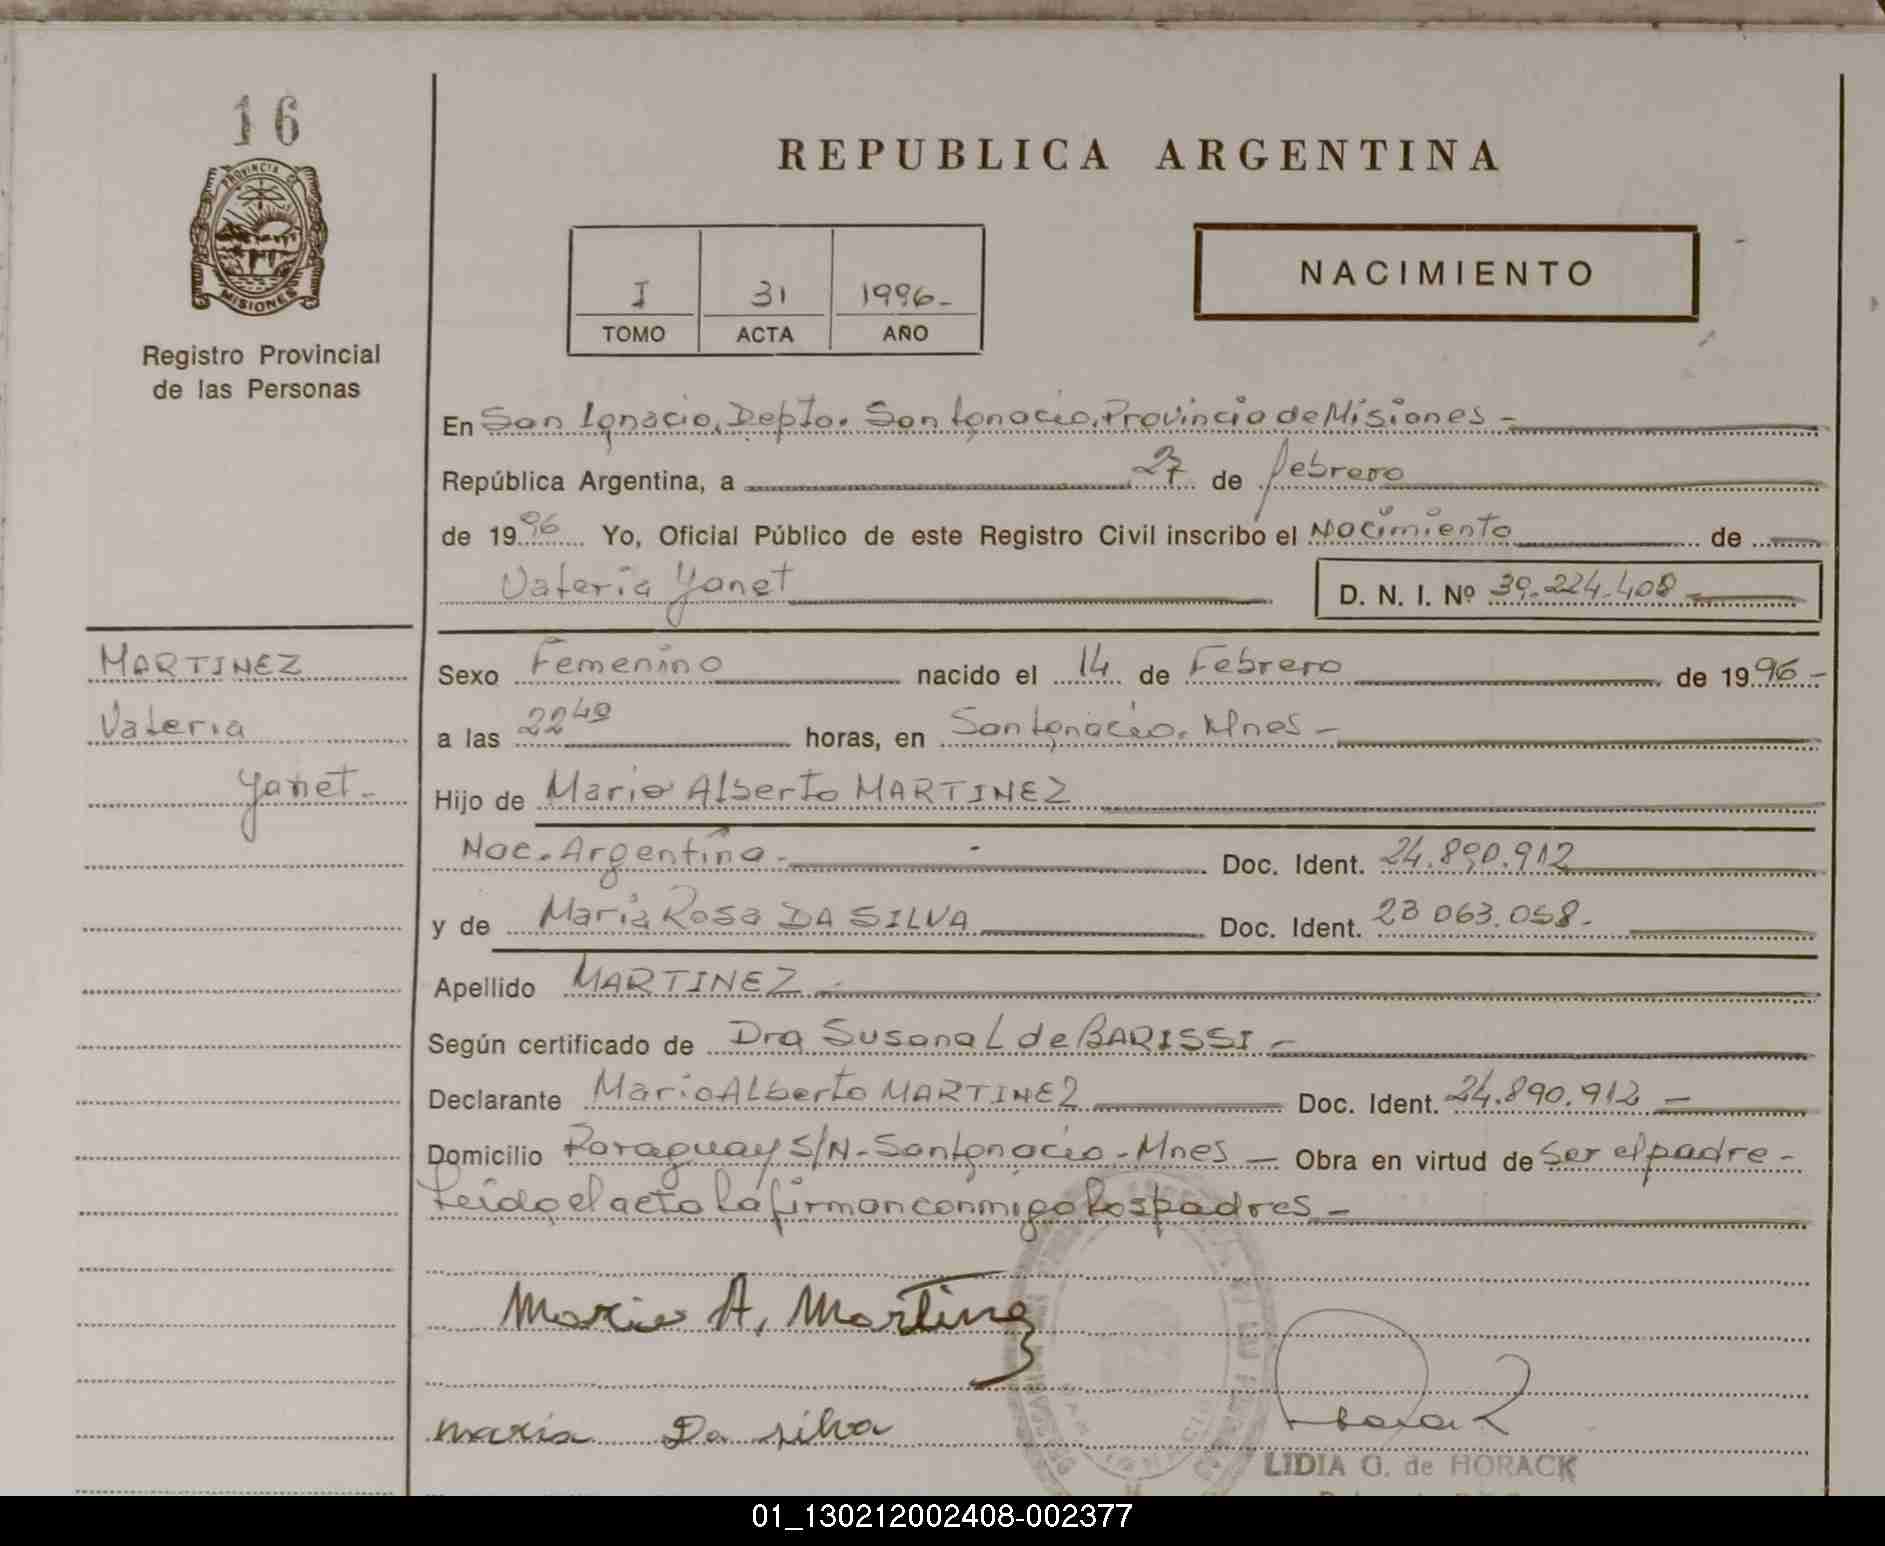 16
PROVINCIA DE
MISIONES
Registro Provincial
de las Personas
REPUBLICA ARGENTINA
I 31 1996-
TOMO ACTA AÑO
NACIMIENTO
En San Ignacio, Depto. San Ignacio, Provincia de Misiones -
República Argentina, a 27 de febrero
de 1996 Yo, Oficial Público de este Registro Civil inscribo el Nacimiento de
Valeria Yanet D. N. I. Nº 39.224.408
MARTINEZ
Valeria
Yanet -
Sexo Femenino nacido el 14 de Febrero de 1996 -
a las 22 40 horas, en San Ignacio. Mnes -
Hijo de Mario Alberto MARTINEZ
Nac. Argentina - Doc. Ident. 24.890.912
y de María Rosa DA SILVA Doc. Ident. 23 063.058 -
Apellido MARTINEZ -
Según certificado de Dra Susana L de BARISSI -
Declarante Mario Alberto MARTINEZ Doc. Ident. 24.890.912 -
Domicilio Paraguay S/N - San Ignacio - Mnes - Obra en virtud de ser el padre -
Leída el acta la firman conmigo los padres -
Mario A. Martinez
maria Da silva
LIDIA G. de HORACK
01_130212002408-002377